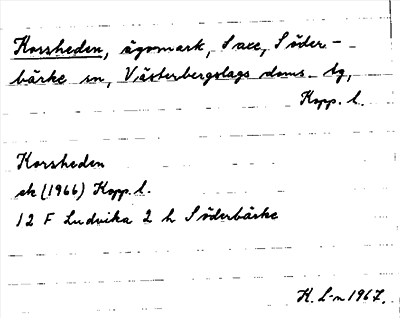 Korsheden, ägomark, Saxe, Söder-
bärke sn, Västerbergslags doms. tg,
Kopp. l.
Korsheden
ek (1966) Kopp. l.
12 F Ludvika 2 h Söderbärke
H. L-n 1967.